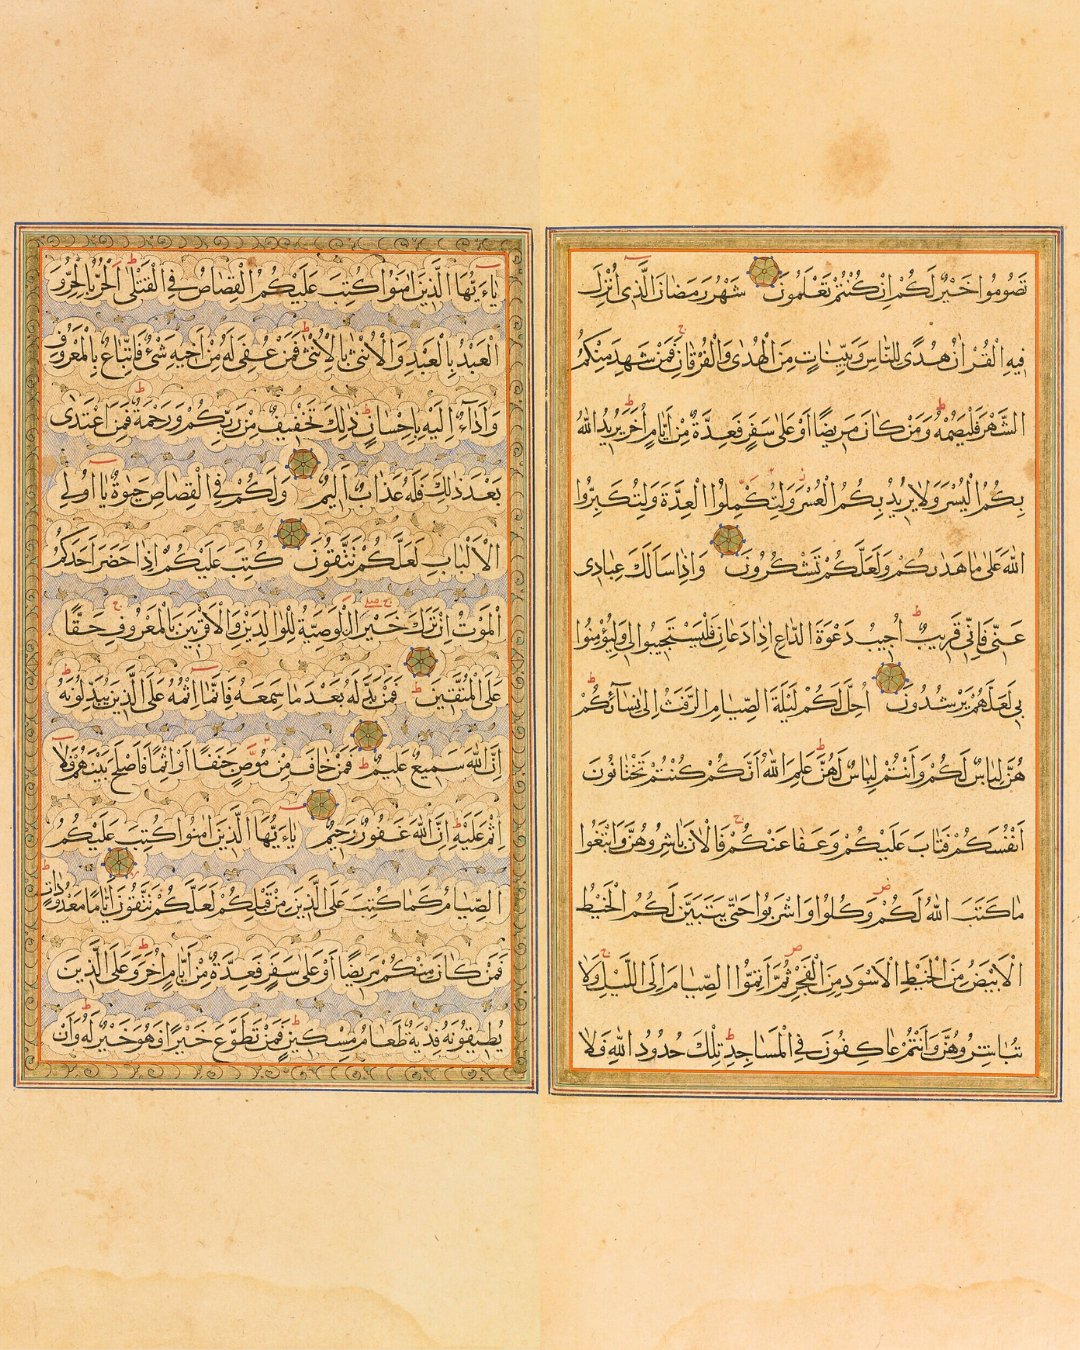 يَاءَيُّهَا الَّذِينَ اٰمَنُوا كُتِبَ عَلَيْكُمُ الْقِصَاصُ فِي الْقَتْلٰى اَلْحُرُّ بِالْحُرِّ وَ
الْعَبْدُ بِالْعَبْدِ وَالْاُنْثٰى بِالْاُنْثٰى فَمَنْ عُفِيَ لَهُ مِنْ اَخِيهِ شَيْءٌ فَاتِّبَاعٌ بِالْمَعْرُوفِ
وَاَدَاءٌ اِلَيْهِ بِاِحْسَانٍ ذٰلِكَ تَخْفِيفٌ مِنْ رَبِّكُمْ وَرَحْمَةٌ فَمَنِ اعْتَدٰى
بَعْدَ ذٰلِكَ فَلَهُ عَذَابٌ اَلِيمٌ وَلَكُمْ فِي الْقِصَاصِ حَيٰوةٌ يَا اُولِي
الْاَلْبَابِ لَعَلَّكُمْ تَتَّقُونَ كُتِبَ عَلَيْكُمْ اِذَا حَضَرَ اَحَدَكُمُ
الْمَوْتُ اِنْ تَرَكَ خَيْرًا الْوَصِيَّةُ لِلْوَالِدَيْنِ وَالْاَقْرَبِينَ بِالْمَعْرُوفِ حَقًّا
عَلَى الْمُتَّقِينَ فَمَنْ بَدَّلَهُ بَعْدَ مَا سَمِعَهُ فَاِنَّمَا اِثْمُهُ عَلَى الَّذِينَ يُبَدِّلُونَهُ
اِنَّ اللّٰهَ سَمِيعٌ عَلِيمٌ فَمَنْ خَافَ مِنْ مُوصٍ جَنَفًا اَوْ اِثْمًا فَاَصْلَحَ بَيْنَهُمْ فَلَا
اِثْمَ عَلَيْهِ اِنَّ اللّٰهَ غَفُورٌ رَحِيمٌ يَاءَيُّهَا الَّذِينَ اٰمَنُوا كُتِبَ عَلَيْكُمُ
الصِّيَامُ كَمَا كُتِبَ عَلَى الَّذِينَ مِنْ قَبْلِكُمْ لَعَلَّكُمْ تَتَّقُونَ اَيَّامًا مَعْدُودَاتٍ
فَمَنْ كَانَ مِنْكُمْ مَرِيضًا اَوْ عَلٰى سَفَرٍ فَعِدَّةٌ مِنْ اَيَّامٍ اُخَرَ وَعَلَى الَّذِينَ
يُطِيقُونَهُ فِدْيَةٌ طَعَامُ مِسْكِينٍ فَمَنْ تَطَوَّعَ خَيْرًا فَهُوَ خَيْرٌ لَهُ وَاَنْ
تَصُومُوا خَيْرٌ لَكُمْ اِنْ كُنْتُمْ تَعْلَمُونَ شَهْرُ رَمَضَانَ الَّذِى اُنْزِلَ
فِيهِ الْقُرْاٰنُ هُدًى لِلنَّاسِ وَبَيِّنَاتٍ مِنَ الْهُدٰى وَالْفُرْقَانِ فَمَنْ شَهِدَ مِنْكُمُ
الشَّهْرَ فَلْيَصُمْهُ وَمَنْ كَانَ مَرِيضًا اَوْ عَلٰى سَفَرٍ فَعِدَّةٌ مِنْ اَيَّامٍ اُخَرَ يُرِيدُ اللّٰهُ
بِكُمُ الْيُسْرَ وَلَا يُرِيدُ بِكُمُ الْعُسْرَ وَلِتُكْمِلُوا الْعِدَّةَ وَلِتُكَبِّرُوا
اللّٰهَ عَلٰى مَا هَدٰىكُمْ وَلَعَلَّكُمْ تَشْكُرُونَ وَاِذَا سَاَلَكَ عِبَادِى
عَنِّى فَاِنِّى قَرِيبٌ اُجِيبُ دَعْوَةَ الدَّاعِ اِذَا دَعَانِ فَلْيَسْتَجِيبُوا لِى وَلْيُؤْمِنُوا
بِى لَعَلَّهُمْ يَرْشُدُونَ اُحِلَّ لَكُمْ لَيْلَةَ الصِّيَامِ الرَّفَثُ اِلٰى نِسَائِكُمْ
هُنَّ لِبَاسٌ لَكُمْ وَاَنْتُمْ لِبَاسٌ لَهُنَّ عَلِمَ اللّٰهُ اَنَّكُمْ كُنْتُمْ تَخْتَانُونَ
اَنْفُسَكُمْ فَتَابَ عَلَيْكُمْ وَعَفَا عَنْكُمْ فَالْاٰنَ بَاشِرُوهُنَّ وَابْتَغُوا
مَا كَتَبَ اللّٰهُ لَكُمْ وَكُلُوا وَاشْرَبُوا حَتّٰى يَتَبَيَّنَ لَكُمُ الْخَيْطُ
الْاَبْيَضُ مِنَ الْخَيْطِ الْاَسْوَدِ مِنَ الْفَجْرِ ثُمَّ اَتِمُّوا الصِّيَامَ اِلَى اللَّيْلِ وَلَا
تُبَاشِرُوهُنَّ وَاَنْتُمْ عَاكِفُونَ فِي الْمَسَاجِدِ تِلْكَ حُدُودُ اللّٰهِ فَلَا